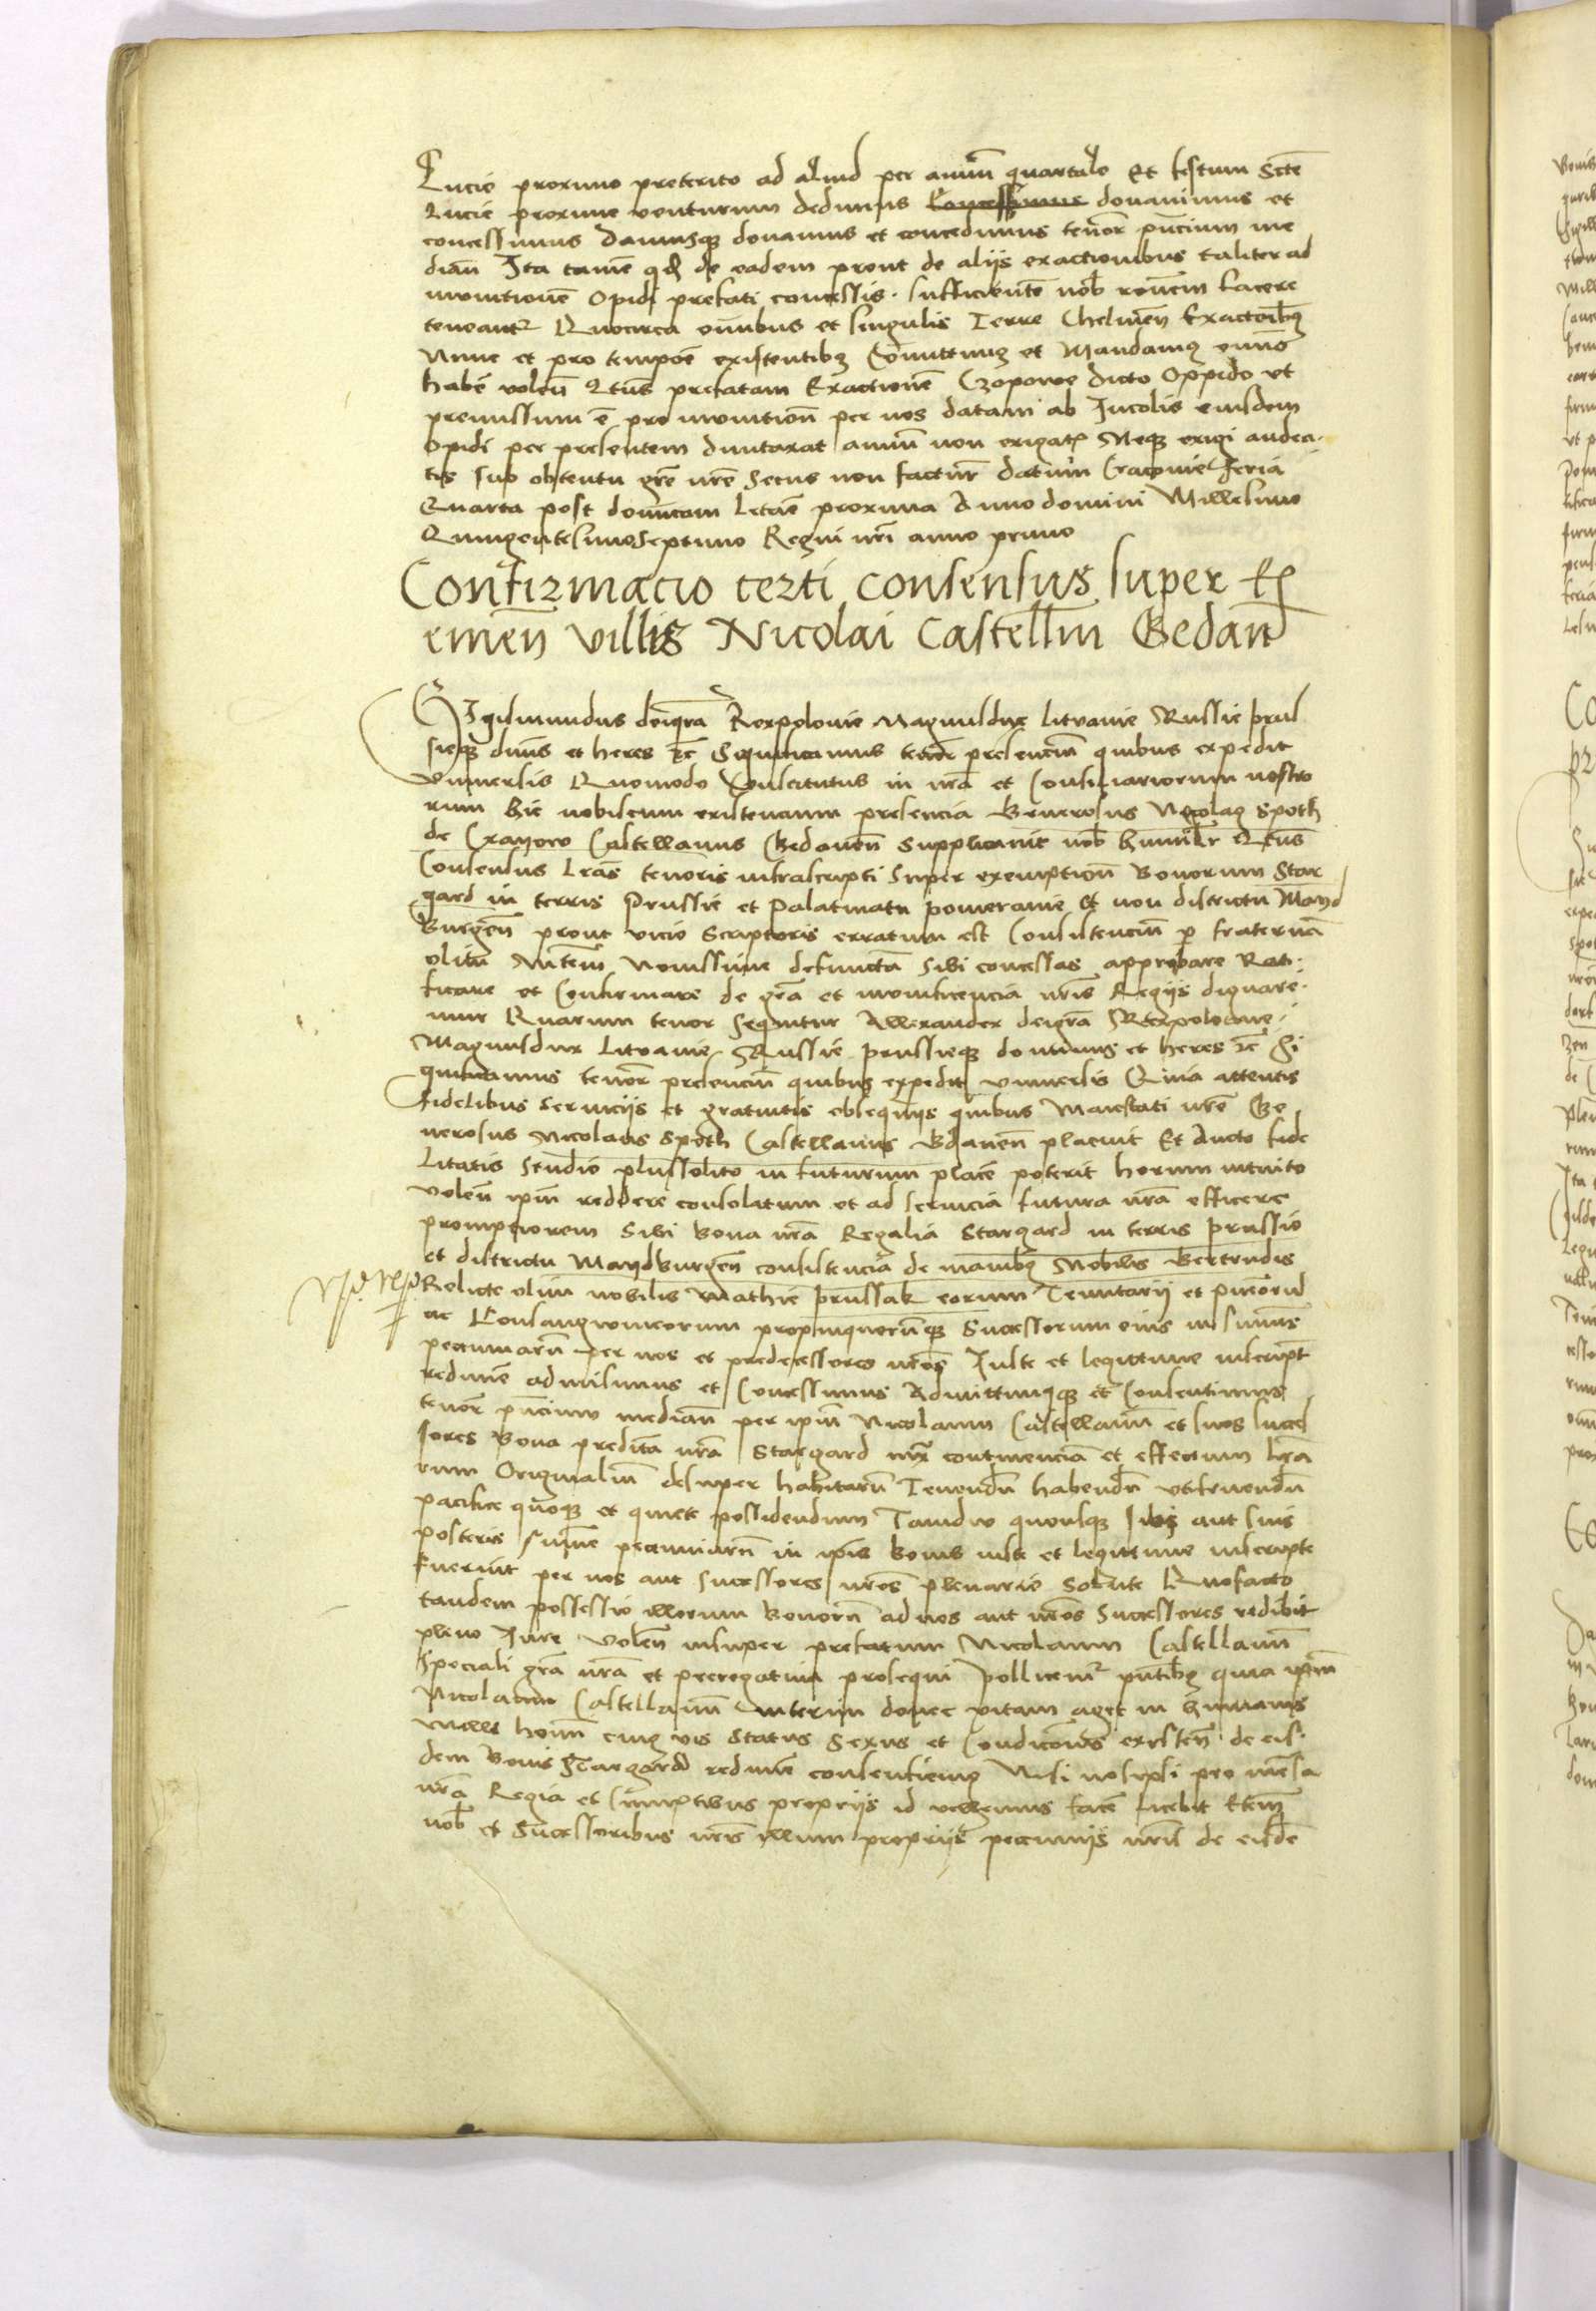 Lucie proximo preterito ad aliud per annum quartale Et festum Scte
Lucie proxime venturum dedimus Concessimus donavimus et
concessimus Damusq donamus et concedimus tenor pncium me
dian Ita tame qd de eadem prout de alijs exactionibus taliter ad
munitione Opidi prefati concessis sufficiente nob racoem facere
teneantr Quocirca omnibus et singulis Terre Chelmen Exactoribq
Nunc et pro tempore existentibq Comittimus et Mandamq omno
habe volen Qtus prefatam Exactione Czopowe dicto Oppido vt
premissum e pro munition per nos datam ab Incolis eiusdem
Opidi per presentem duntaxat annu non exigatz Neq exigi audea
tis sub obtentu gre nre Secus non factur datum Cracouie Feria
Quarta post dominicam Letare proxima Anno domini Millesimo
Quingentesimoseptimo Regni nri anno primo
Confirmacio certi consensus super Ex
emen villis Nicolai Castellm Gedan
Sigismundus deigra Rexpolonie Magnusdux Litvanie Russie prus
sieq dnus et heres etc Significamus tenor presencium quibus expedit
vniuersis Quomodo Constitutus in nra et Consiliariorum nostro
rum hic nobiscum existencium presencia Generosus Nicolaq Spoth
de Craxow Castellanus Gedanen Supplicauit nob humilr Qtus
Consensus Lras tenoris infrascripti Super exemption Bonorum Star
gard in terris Prussie et Palatinatu pomeranie Et non districtu Mayd
Burgen prout vicio Scriptoris erratum est Consistencium p fraternam
olim Mtem Nouissime defunctam Sibi concessas approbare Rati
ficare et Confirmare de gra et munificencia nris Regijs dignare
mur Quarum tenor sequitur Allexander deigra Rexpolonie
Magnusdux Litvanie Russie prussieq dominus et heres etc Si
gnificamus tenor presencium quibus expedit vniuersis Quia attentis
fidelibus Seruicijs et gratuitis obsequijs quibus Maiestati nre Ge
nerosus Nicolaus Spoth Castellanus Gdanen placuit Et Aucto fide
litatis Studio plussolito in futurum place poterit horum intuito
volen ipm reddere consolatum et ad seruicia futura nra efficere
prompciorem Sibi bona nra Regalia Stargard in terris prussie
et districtu Maydburgen consistencia de manibq Nobilis Gertrudis
Relicte olim nobilis Mathie prussak eorum Tenutarij et puerorum
ac Consangwineorum propinquorumq Successorum eius in summis
pecuniarum per nos et predecessores nros Iuste et legittime inscript
redimere admisimus et Concessimus Admittimusq et Consentimus
tenor pncium median per ipm Nicolaum Castellanum et suos Succes
sores Bona predicta nra Stargard iuxta continenciam et effectum lra
rum Originalium desuper habitarum Tenendum habendum vtifruendum
pacifice quoq et quiete possidendum Tamdiu quousq sibi aut suis
posteris summe pecuniarum in ipis bonis iuste et legittime inscripte
fuerint per nos aut successores nros plenarie Solute Quofacto
tandem possessio illorum bonorum ad nos aut nros Successores redibit
pleno Iure Volen insuper prefatum Nicolaum Castellanum
Speciali gra nra et prerogatiua prosequi Pollicemr pntibq quia ipm
Nicolaum Castellanum interim donec vitam aget in humanis
Nulli homi cuiq vis Status Sexus et Condicois existen de eis
dem Bonis Stargard redimere consentiemq Nisi nosipsi pro mensa
nra Regia et Sumptibus proprijs id vellemus face licebit Etem
nob et Successoribus nris illum proprijs pecunijs nris de eisde